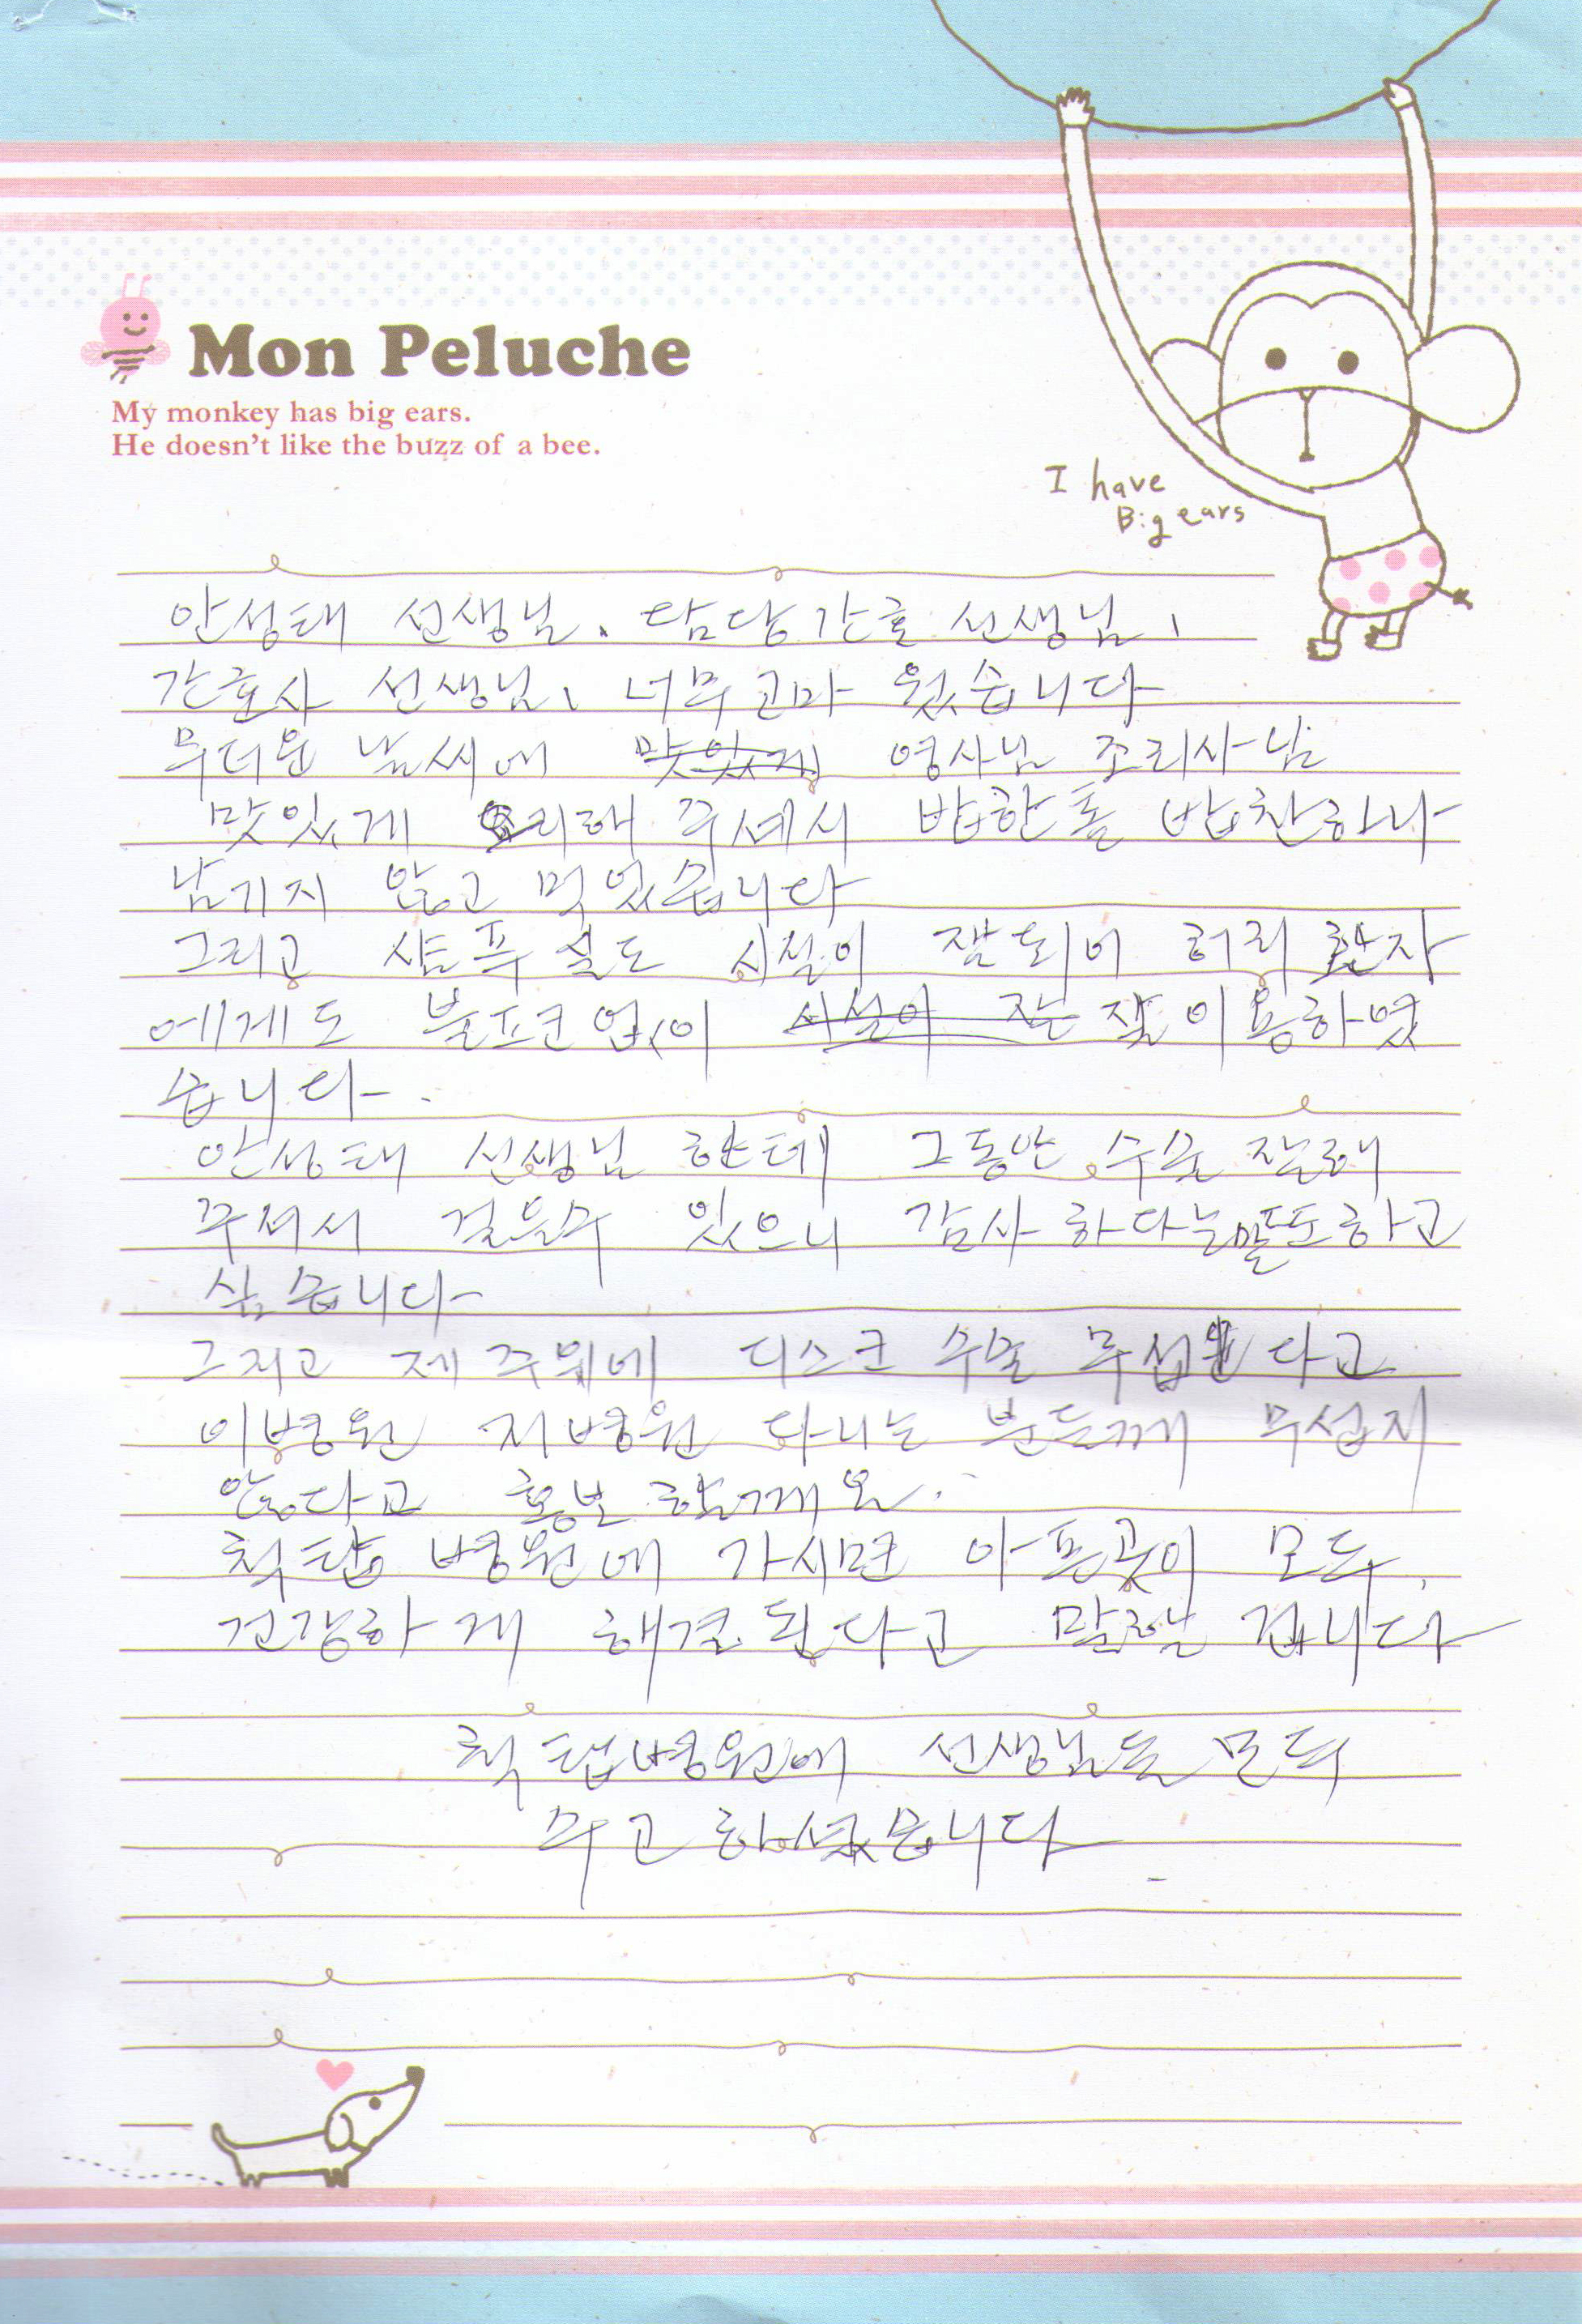 Mon Peluche
My monkey has big ears.
He doesn't like the buzz of a bee.
I have
Big ears
안성태 선생님、담당간호 선생님、
간호사 선생님、너무 고마 웠습니다
무더운 날씨에 맛있게 영사님 조리사님
맛있게 요리해 주셔서 밥한톨 반찬하나
남기지 않고 먹었습니다
그리고 샴푸 실도 시설이 잘되어 허리 환자
에게도 불편없이 시설이 잘 이용하였
습니다.
안성태 선생님 한테 그동안 수술 잘해
주셔서 걸을수 있으니 감사 하다는말또하고
싶습니다
그리고 제 주위에 디스크 수술 무섭 다고
이병원 저병원 다니는 분들께 무섭지
않다고 홍보 할께요.
척탑 병원에 가시면 아픈곳이 모두
건강하게 해결 된다고 말할 겁니다
척탑병원에 선생님들 모두
수고 하셨습니다